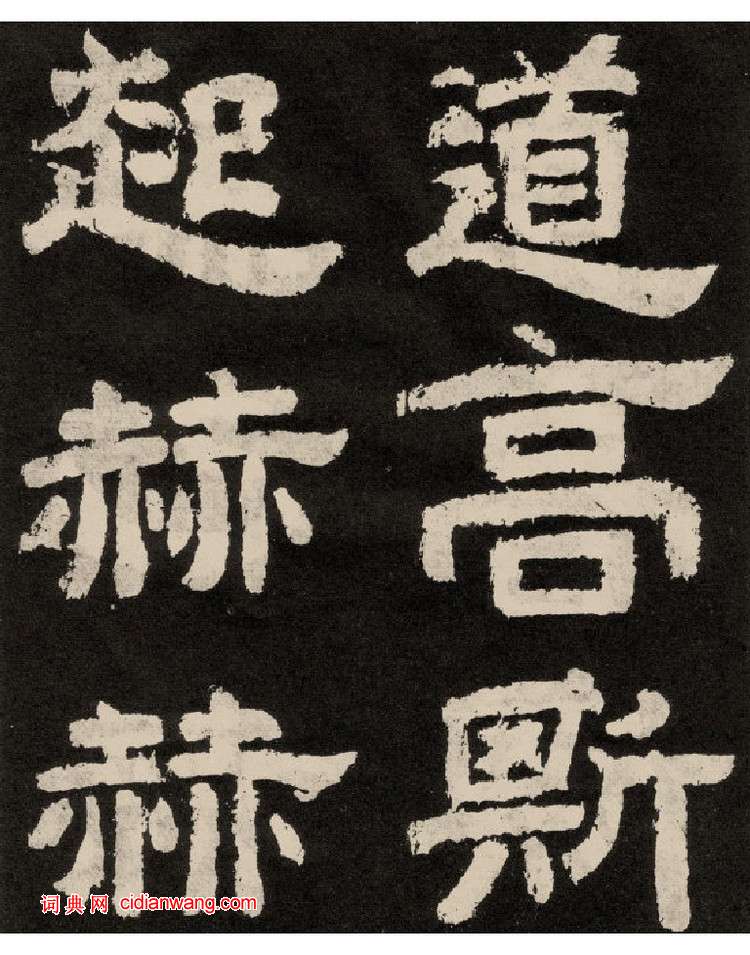 道高斯
起赫赫
词典网 cidianwang.com